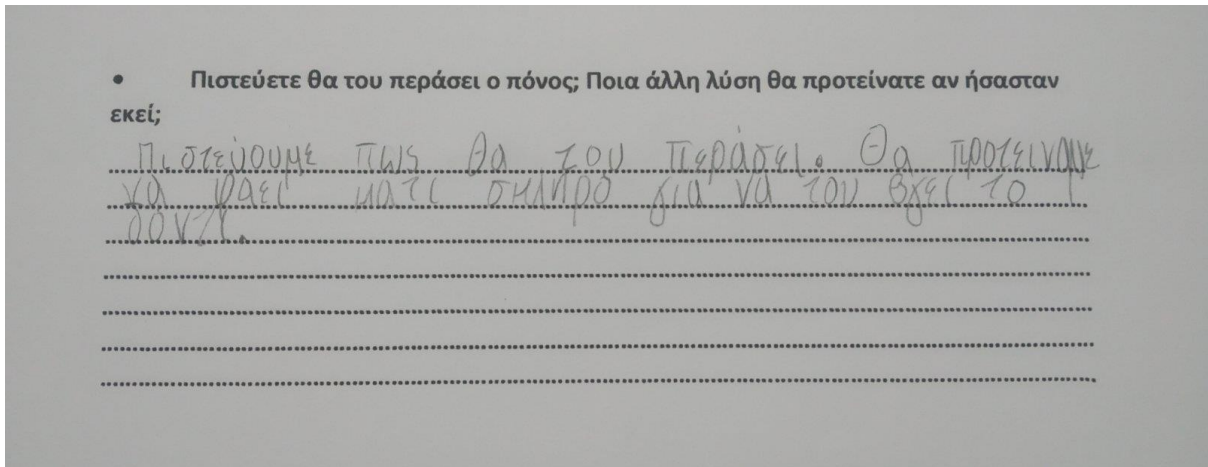 • Πιστεύετε θα του περάσει ο πόνος; Ποια άλλη λύση θα προτείνατε αν ήσασταν
εκεί;
Πιστεύουμε πως θα του περάσει. Θα προτειναμε
να φαει κατι σκληρο για να του βγει το
δοντι.